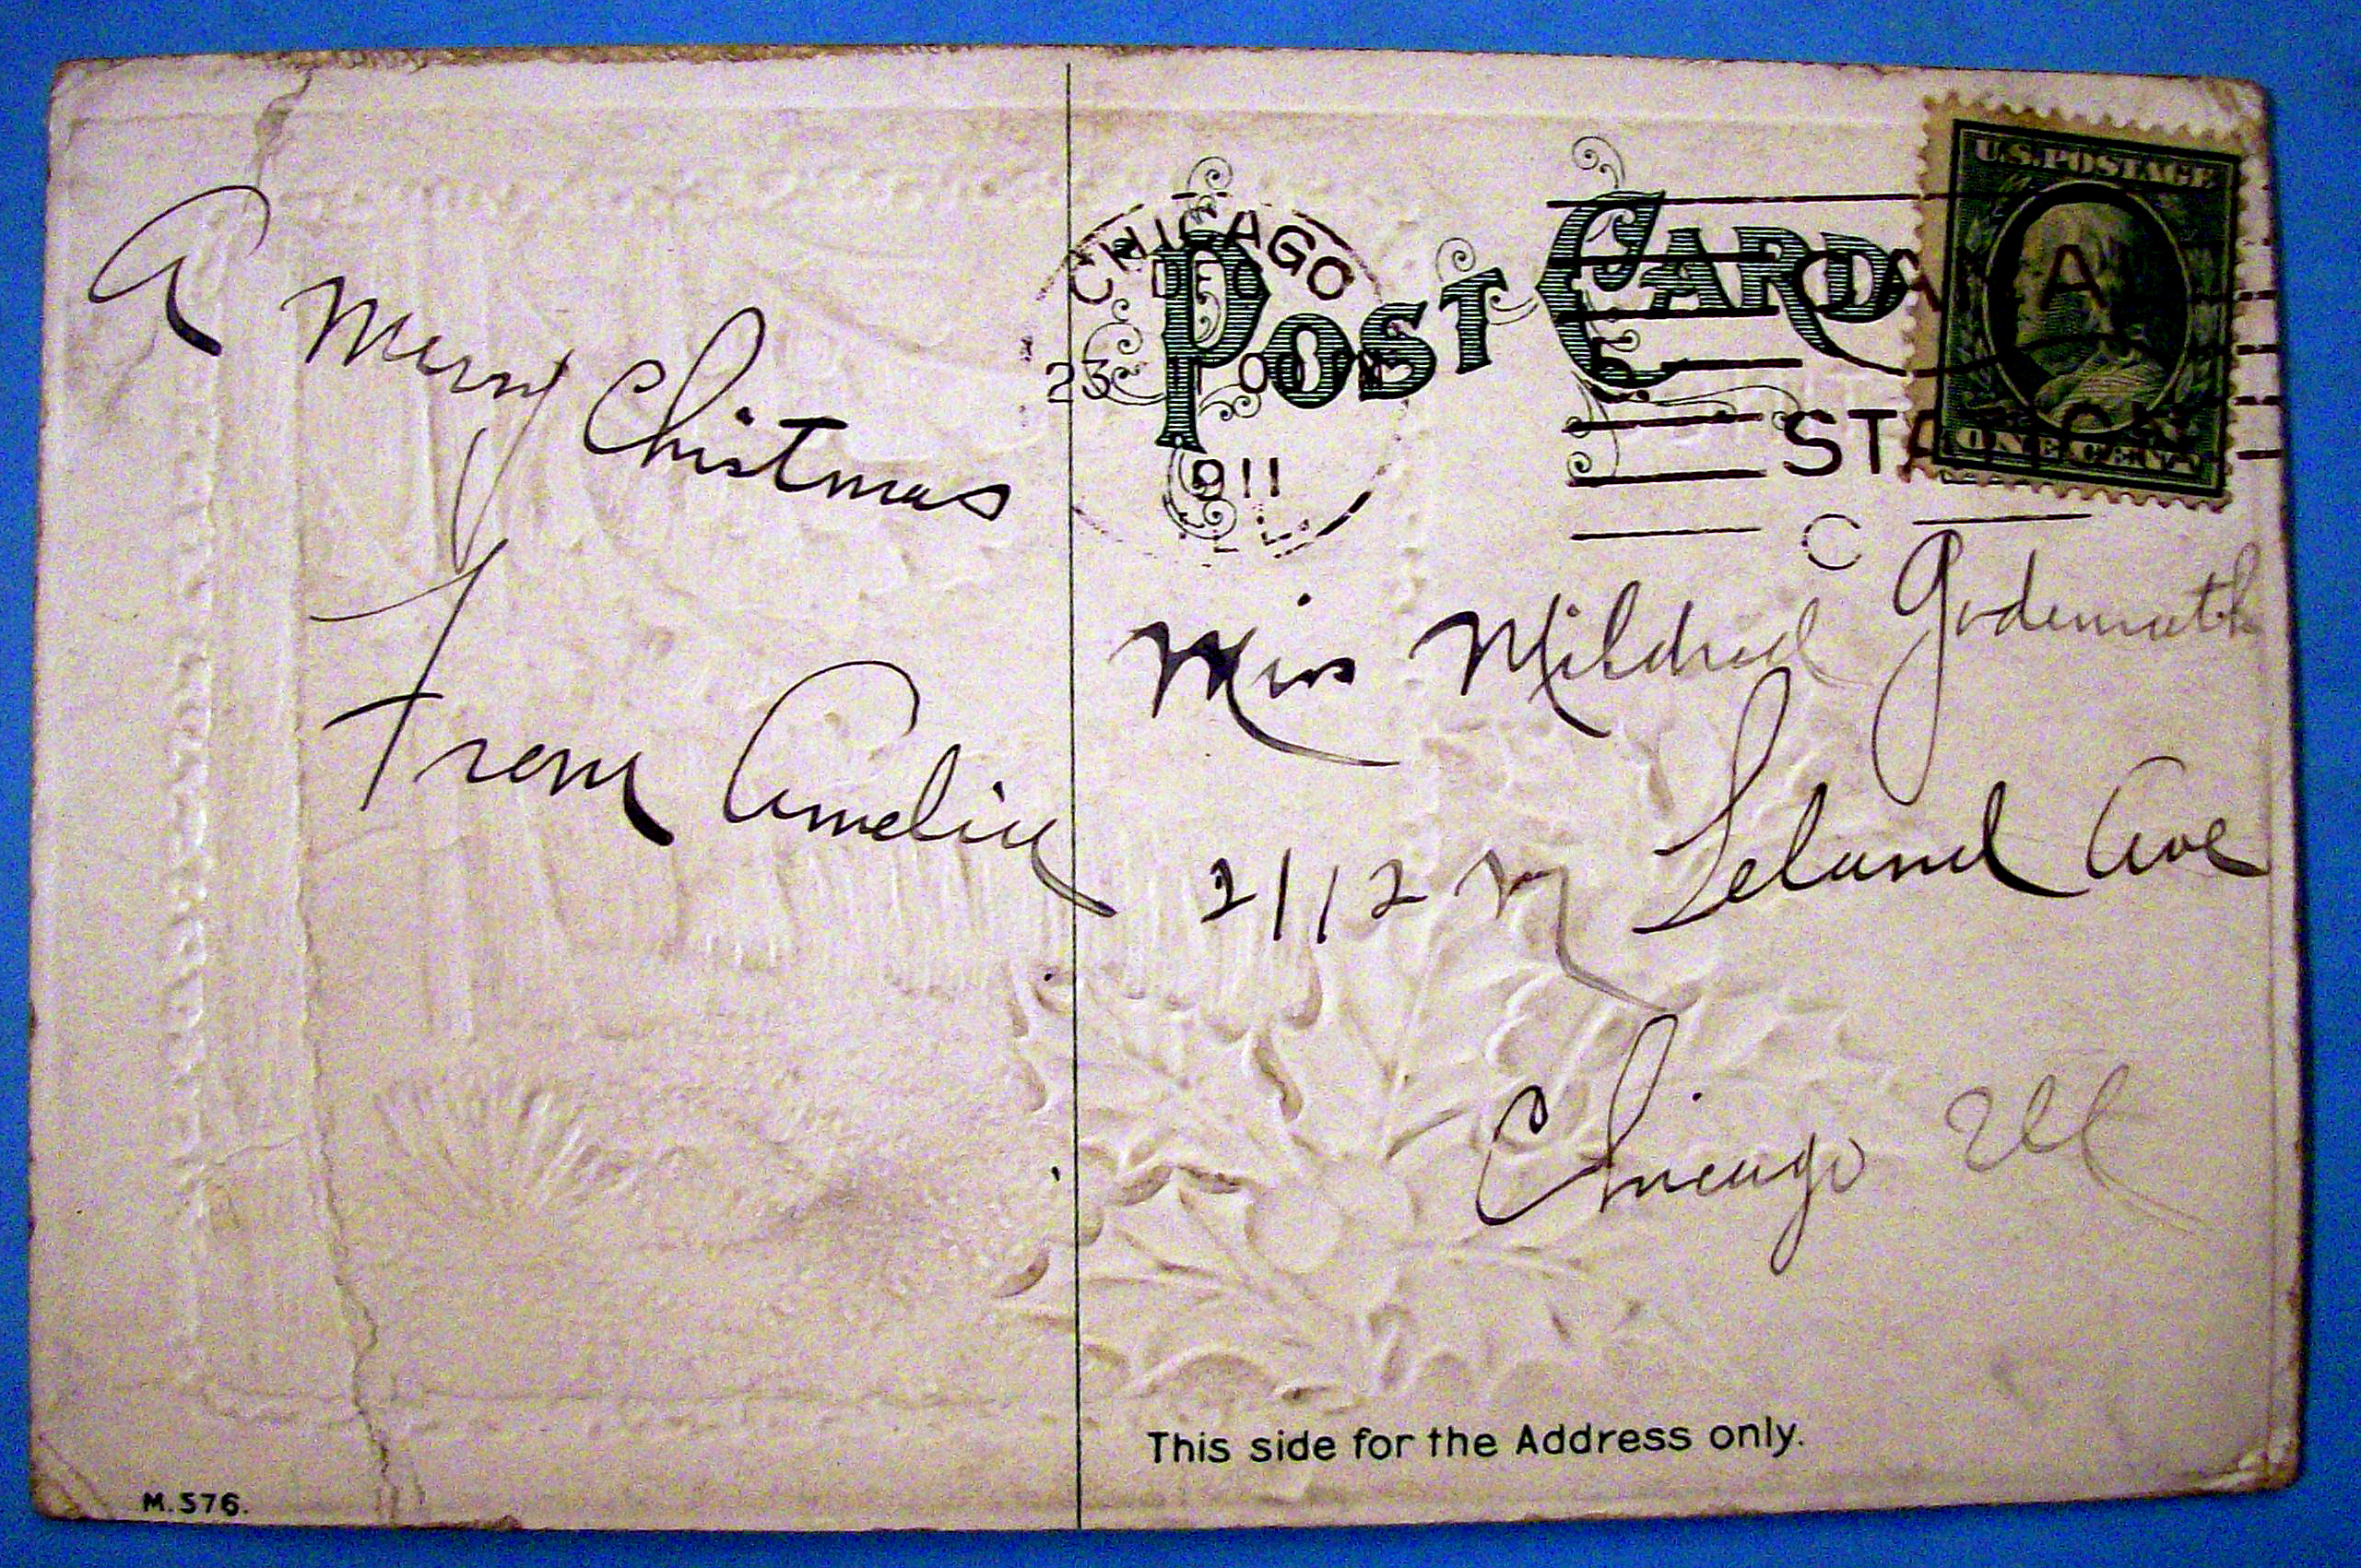 A Merry Chistmas
From Amelia
POST CARD
CHICAGO
DEC
23
1911
STA
C
U.S. POSTAGE
ONE CENT
Miss Mildred
2112 Leland Ave
Chicago Ill
This side for the Address only.
M. 576.